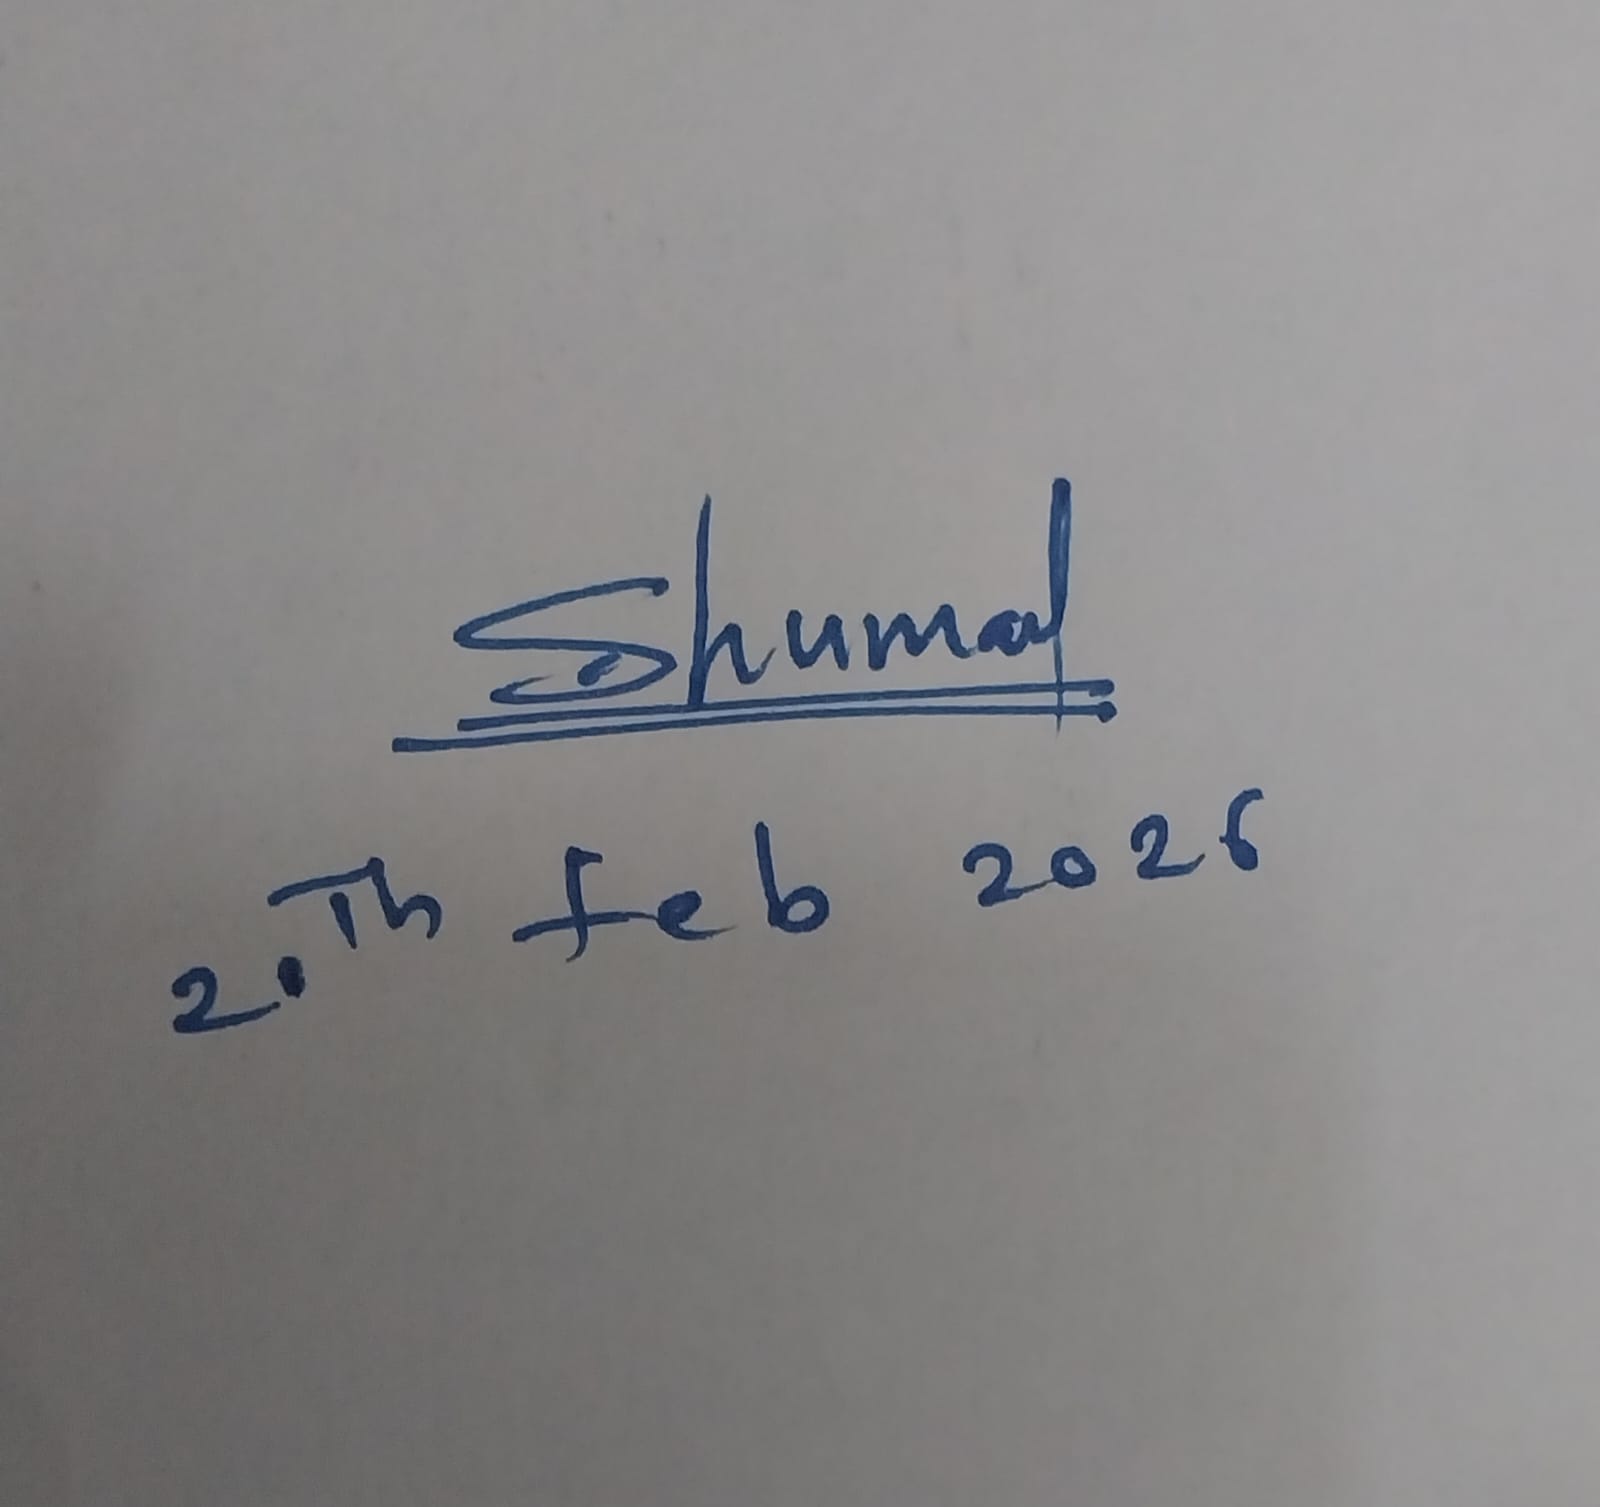 Shumal
20Th feb 2026